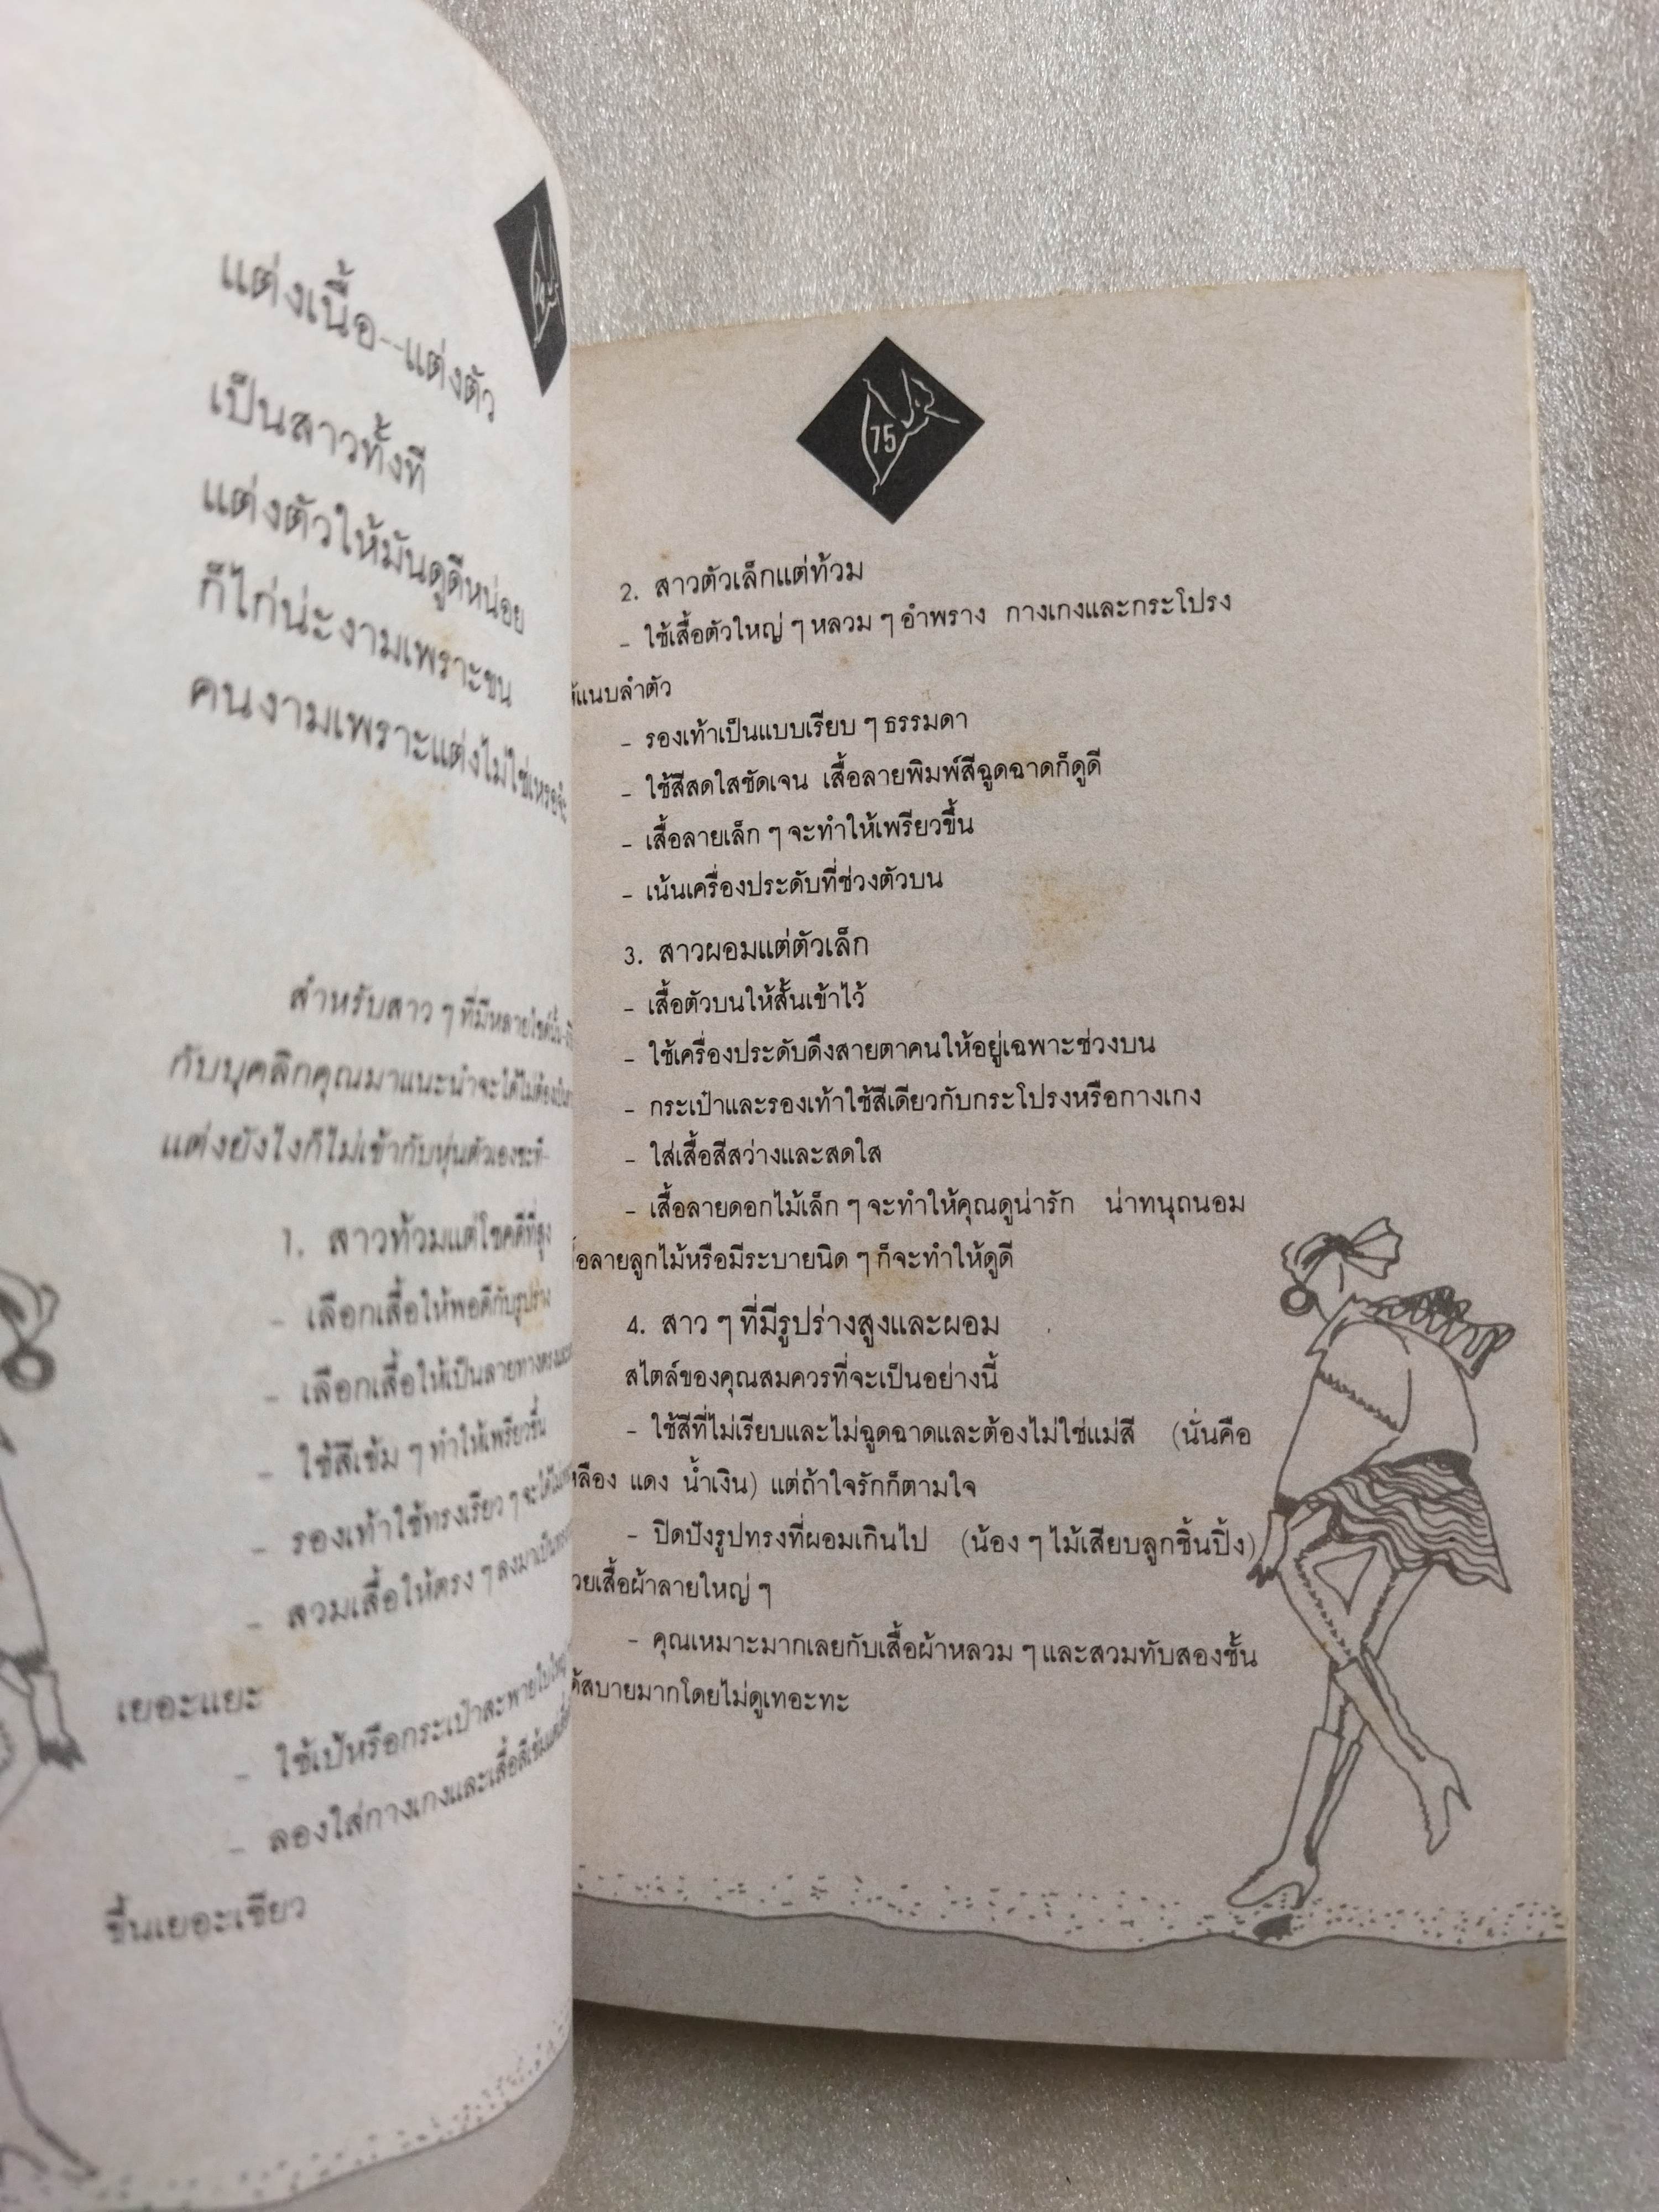 แต่งเนื้อ--แต่งตัว
เป็นสาวทั้งที
แต่งตัวให้มันดูดีหน่อย
ก็ไก่น่ะงามเพราะขน
คนงามเพราะแต่งไม่ใช่เหรอจ๊ะ
สำหรับสาว ๆ ที่มีหลายไซด์นั้น
กับบุคลิกคุณมาแนะนำจะได้ไม่ต้อง
แต่งยังไงก็ไม่เข้ากับหุ่นตัวเองซะที
1. สาวท้วมแต่โชคดีที่สูง
- เลือกเสื้อให้พอดีกับรูปร่าง
- เลือกเสื้อให้เป็นลายทางตรง
- ใช้สีเข้ม ๆ ทำให้เพรียวขึ้น
- รองเท้าใช้ทรงเรียว ๆ จะได้
- สวมเสื้อให้ตรง ๆ ลงมาเป็น
เยอะแยะ
- ใช้เป้หรือกระเป๋าสะพายใบใหญ่
- ลองใส่กางเกงและเสื้อสีเข้ม
ขึ้นเยอะเชียว
75
2. สาวตัวเล็กแต่ท้วม
- ใช้เสื้อตัวใหญ่ ๆ หลวม ๆ อำพราง กางเกงและกระโปรง
แนบลำตัว
- รองเท้าเป็นแบบเรียบ ๆ ธรรมดา
- ใช้สีสดใสชัดเจน เสื้อลายพิมพ์สีฉูดฉาดก็ดูดี
- เสื้อลายเล็ก ๆ จะทำให้เพรียวขึ้น
- เน้นเครื่องประดับที่ช่วงตัวบน
3. สาวผอมแต่ตัวเล็ก
- เสื้อตัวบนให้สั้นเข้าไว้
- ใช้เครื่องประดับดึงสายตาคนให้อยู่เฉพาะช่วงบน
- กระเป๋าและรองเท้าใช้สีเดียวกับกระโปรงหรือกางเกง
- ใส่เสื้อสีสว่างและสดใส
- เสื้อลายดอกไม้เล็ก ๆ จะทำให้คุณดูน่ารัก น่าทนุถนอม
อลายลูกไม้หรือมีระบายนิด ๆ ก็จะทำให้ดูดี
4. สาว ๆ ที่มีรูปร่างสูงและผอม
สไตล์ของคุณสมควรที่จะเป็นอย่างนี้
- ใช้สีที่ไม่เรียบและไม่ฉูดฉาดและต้องไม่ใช่แม่สี (นั่นคือ
หลือง แดง น้ำเงิน) แต่ถ้าใจรักก็ตามใจ
- ปิดบังรูปทรงที่ผอมเกินไป (น้อง ๆ ไม้เสียบลูกชิ้นปิ้ง)
วยเสื้อผ้าลายใหญ่ ๆ
- คุณเหมาะมากเลยกับเสื้อผ้าหลวม ๆ และสวมทับสองชั้น
ด้สบายมากโดยไม่ดูเทอะทะ